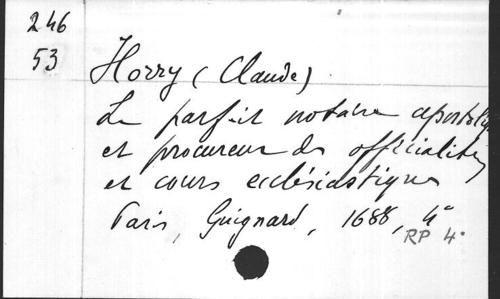 246
53
Horry (Claude)
Le parfait notaire apostolique
et procureur des officialités
et cours ecclésiastiques
Paris, Guignard, 1688, 4°
RP 4°